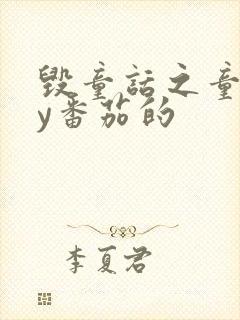 毁童话之童
y番茄的
李夏君